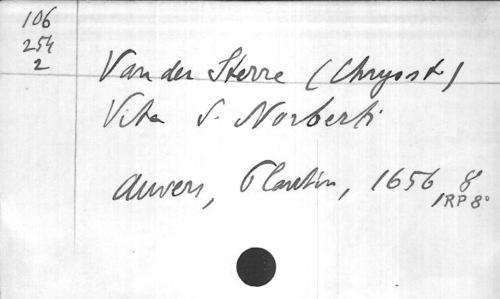 106
254
2
Van der Sterre (Chrysost)
Vita S. Norberti
Anvers, Plantin, 1656 8°
1RP 8°